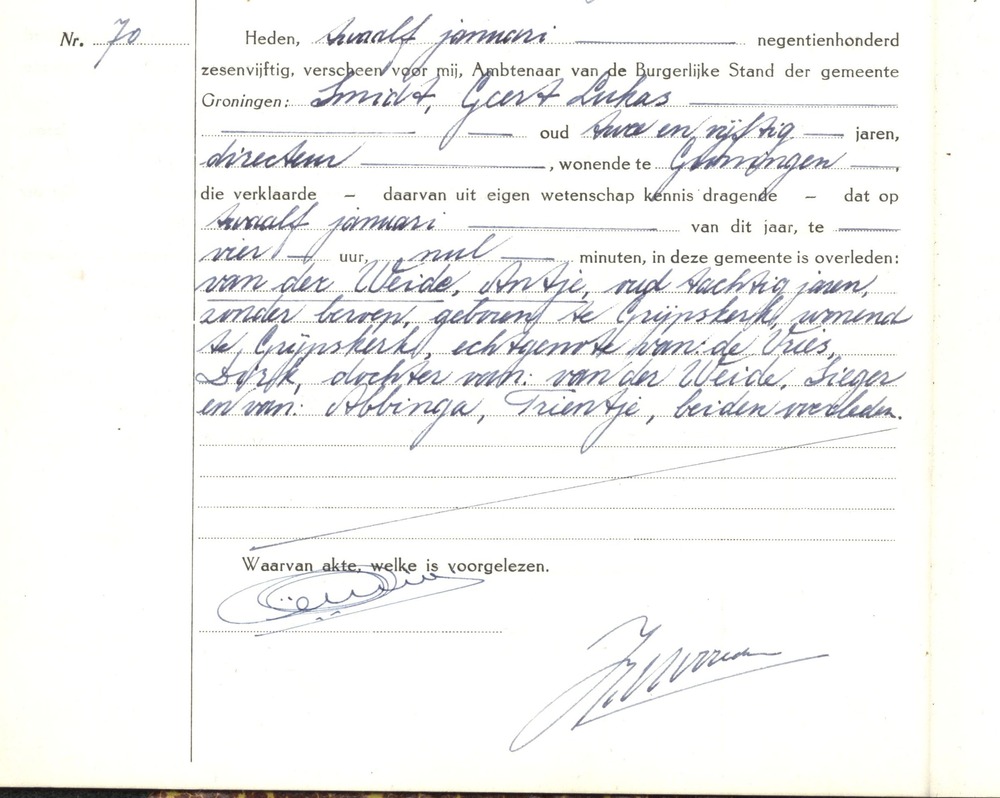 Nr. 70
Heden, twaalf januari negentienhonderd
zesenvijftig, verscheen voor mij, Ambtenaar van de Burgerlijke Stand der gemeente
Groningen: Smidt, Geert Lukas
oud twee en vijftig jaren,
directeur, wonende te Groningen,
die verklaarde – daarvan uit eigen wetenschap kennis dragende – dat op
twaalf januari van dit jaar, te
vier uur, nul minuten, in deze gemeente is overleden:
van der Weide, Antje, oud tachtig jaren,
zonder beroep, geboren te Grijpskerk, wonend
te Grijpskerk, echtgenote van: de Vries,
Dirk, dochter van: van der Weide, Sieger
en van: Abbinga, Trientje, beiden overleden.
Waarvan akte, welke is voorgelezen.